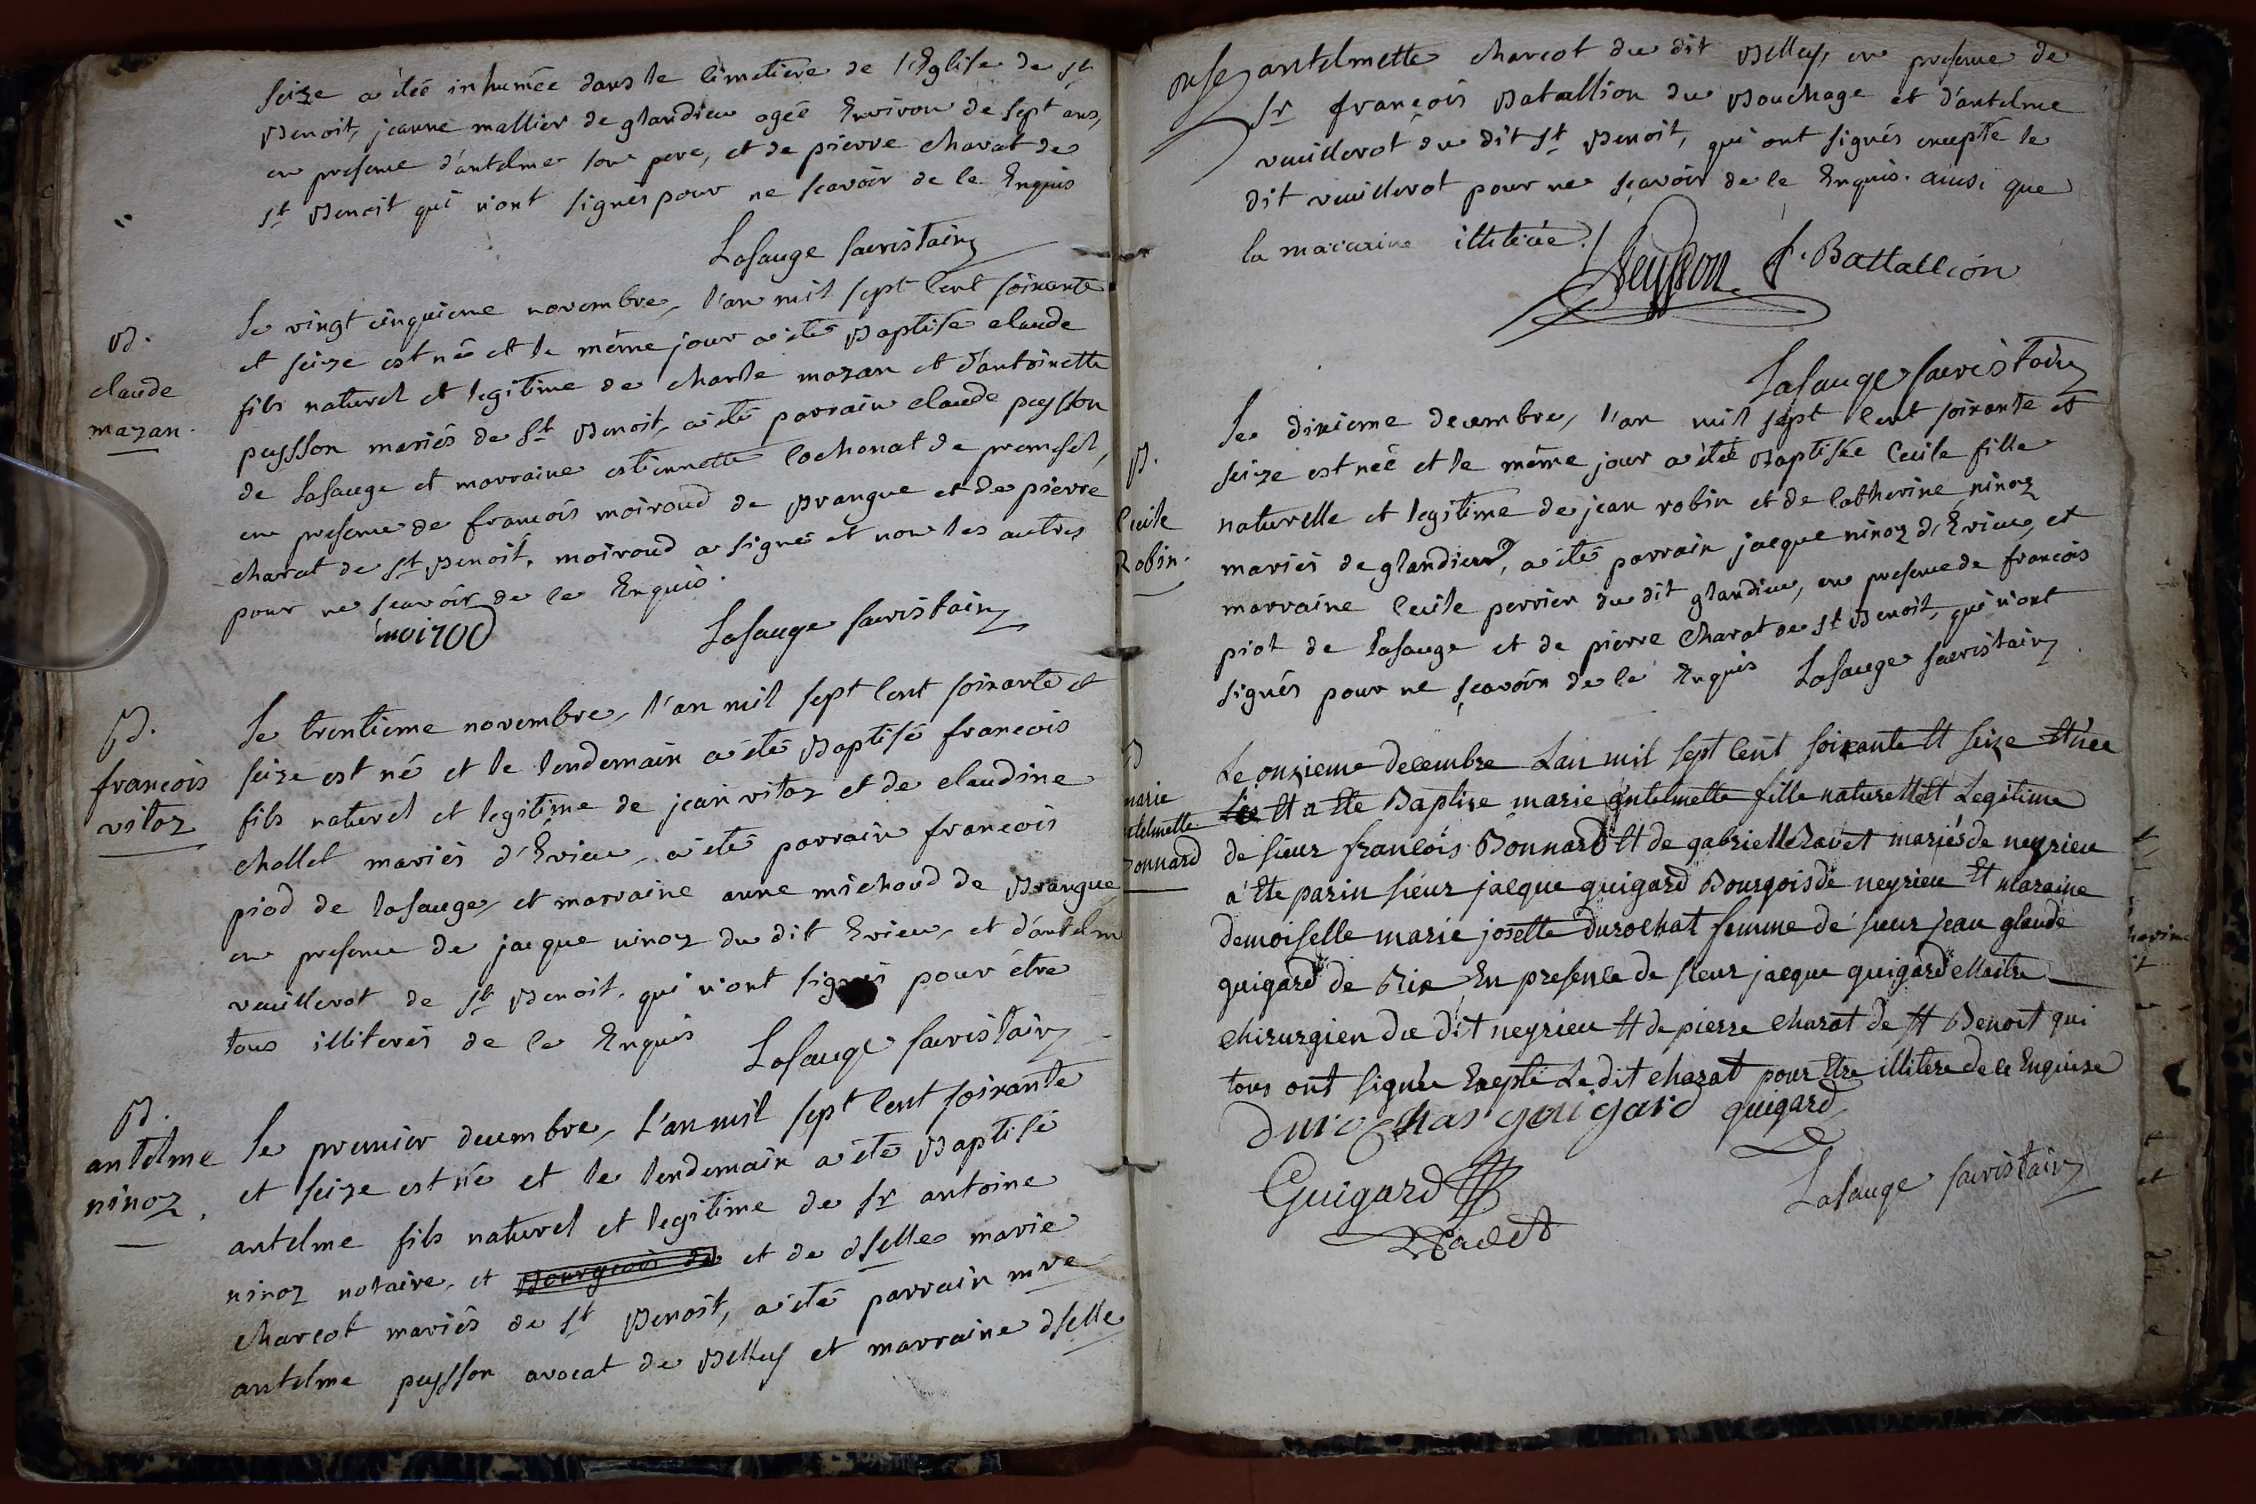 seize a été inhumée dans le cimetiere de l'Eglise de st
Benoit, jeanne mallier de glandieu agée Environ de sept ans,
en presence d'antelme son pere, et de pierre charat de
st Benoit qui n'ont signés pour ne scavoir de ce Enquis
Lasauge sacristain
B.
claude
mazan.
le vingt cinquieme novembre, l'an mil sept cent soixante
et seize est né et le même jour a été Baptisé claude
fils naturel et legitime de charle mazan et d'antoinette
peysson mariés de St Benoit, a été parrain claude peysson
de Lasauge et marraine estiennette cochonat de premesel,
en presence de francois moiroud de Brangue et de pierre
charat de st Benoit, moiroud a signé et non les autres
pour ne scavoir de ce Enquis.
moirod
Lasauge sacristain
B.
francois
vitoz
le trentieme novembre, l'an mil sept cent soixante et
seize est né et le lendemain a été Baptisé francois
fils naturel et legitime de jean vitoz et de claudine
chollet mariés d'Evieu, a été parrain francois
piod de lasauge, et marraine anne michoud de Brangue
en presence de jacque ninoz du dit Evieu, et d'antelm
veuillerot de st Benoit, qui n'ont signés pour étre
tous illiterés de ce Enquis
Lasauge sacristain
B.
antelme
ninoz.
le premier decembre, l'an mil sept cent soixante
et seize est né et le lendemain a été Baptisé
antelme fils naturel et legitime de sr antoine
ninoz notaire, et Bourgeois de et de dselle marie
charcot mariés de st Benoit, a été parrain mre
antelme peysson avocat de Belley et marraine dselle
antelmette charcot du dit Belley, en presence de
sr françois Batallion du Bouchage et d'antelme
veuillerot du dit st Benoit, qui ont signés excepté le
dit veuillerot pour ne sçavoir de ce Enquis. ausi que
la maraine illiterée./
Peysson F. Battallion
Lasauge sacristain
B.
Cecile
Robin.
le dixieme decembre, l'an mil sept cent soixante et
seize est née et le même jour a été Baptisée Cecile fille
naturelle et legitime de jean robin et de Catherine ninoz
mariés de glandieu, a été parrain jacque ninoz d'Evieu, et
marraine Cecile perrier du dit glandieu, en presence de francois
piot de lasauge et de pierre Charat de st Benoit, qui n'ont
signés pour ne sçavoir de ce Enquis Lasauge sacristain
B
marie
telmette
Bonnard
Le onzieme decembre Lan mil sept Cent soixante Et seize Et née
Et a Ete Baptise marie antelmette fille naturelle Et Legitime
de sieur francois Bonnard Et de gabrielle Ravet mariés de neyrieu
a Ete parin sieur jacque guigard Bourgois de neyrieu Et maraine
demoiselle marie josette durochat femme de sieur jean glaude
guigard de Brie En presence de sieur jacque guigard Maitre
chirurgien du dit neyrieu Et de pierre charat de st Benoit qui
tous ont signée Exepté Le dit charat pour Etre illitere de ce Enquise
durochat guigard guigard
Guigard
Lasauge sacristain